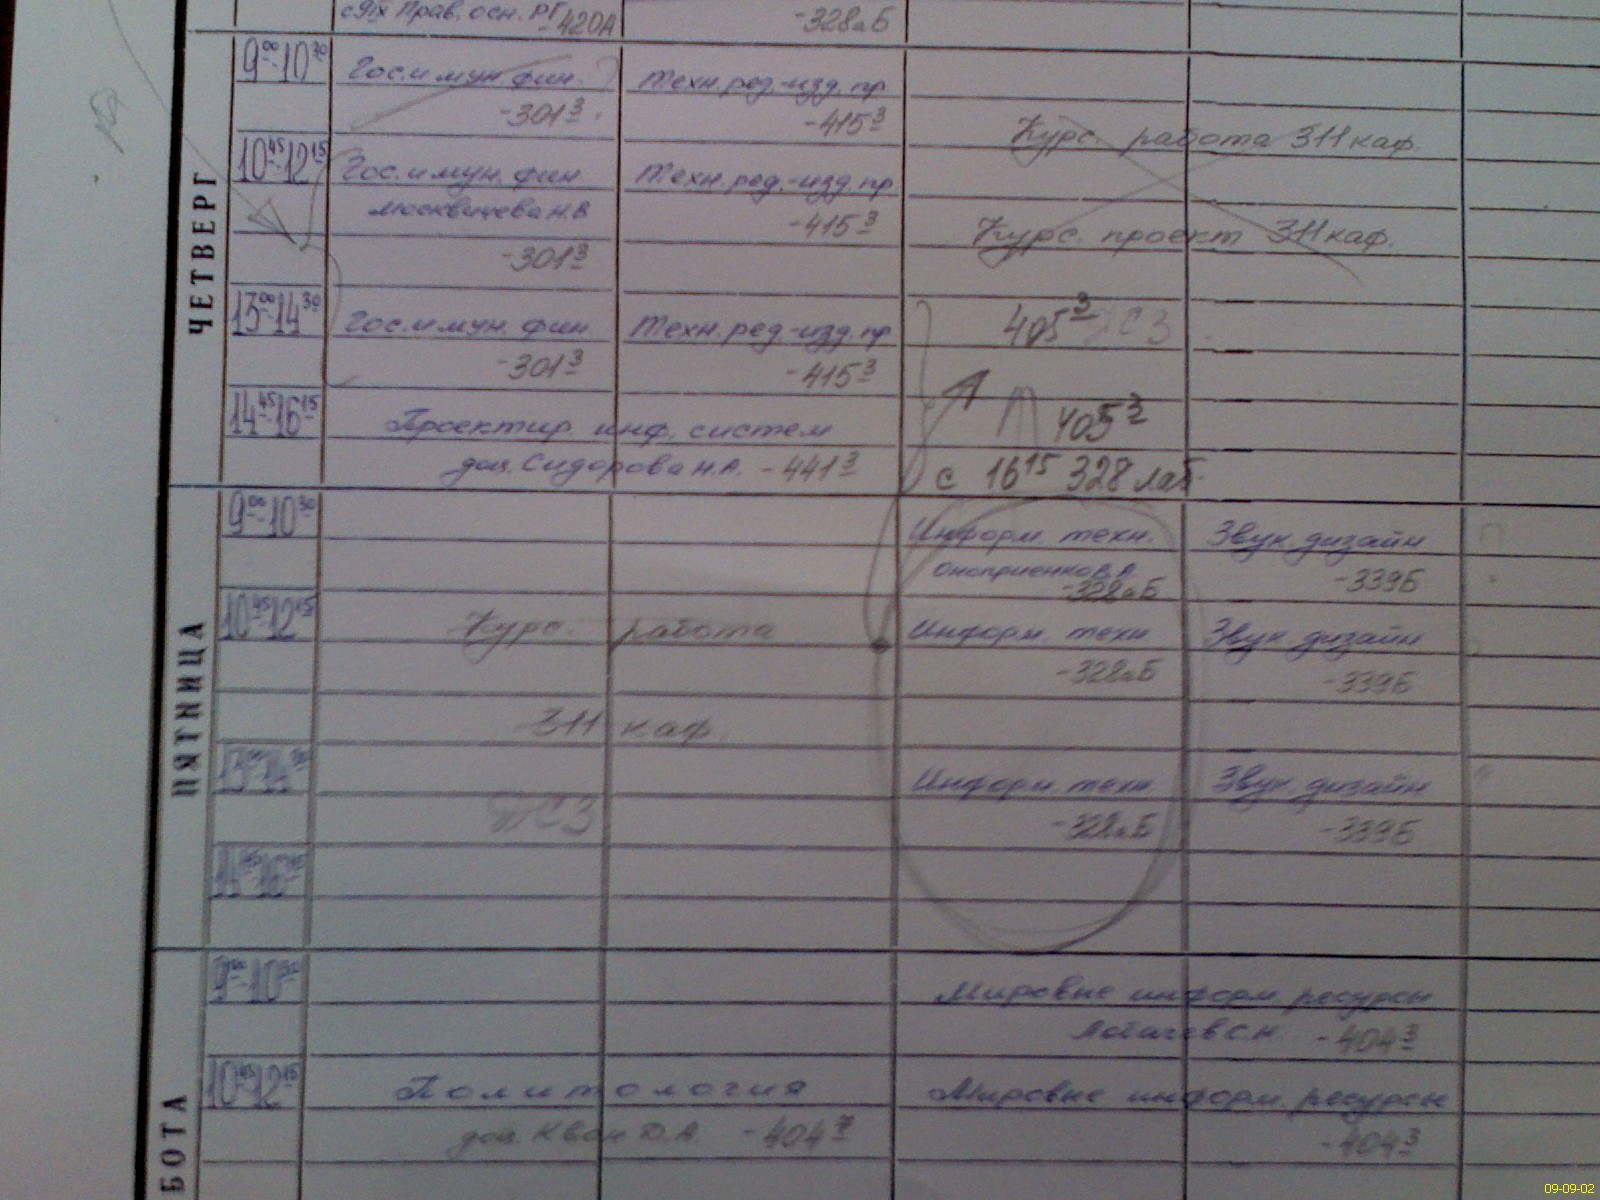 с 9й х Прав. осн. РГ
-420А
-328аБ
ЧЕТВЕРГ
9⁰⁰-10³⁰
Гос. и мун. фин.
-301З
Техн. ред.-изд. пр
-415З
Курс. работа 311 каф.
10⁴⁵-12¹⁵
Гос. и мун. фин.
Москвичева Н.В
-301З
Техн. ред.-изд. пр
-415З
Курс. проект 311 каф.
13⁰⁰-14³⁰
Гос. и мун. фин.
-301З
Техн. ред.-изд. пр
-415З
405З ДСЗ
14⁴⁵-16¹⁵
Проектир инф. систем
доц. Сидорова Н.А. -441З
405З
с 16¹⁵ 328 лаб.
ПЯТНИЦА
9⁰⁰-10³⁰
Информ. техн.
Оноприенко В.А.
-328аБ
Звук. дизайн
-339Б
10⁴⁵-12¹⁵
Курс. работа
311 каф.
Информ. техн
-328аБ
Звук. дизайн
-339Б
13⁰⁰-14³⁰
ДСЗ
Информ. техн.
-328аБ
Звук. дизайн
-339Б
14⁴⁵-16¹⁵
БОТА
9⁰⁰-10³⁰
Мировые информ. ресурсы
С.Н. -404З
10⁴⁵-12¹⁵
Политология
доц. Кван Д.А. -404
Мировые информ. ресурсы
-404З
09-09-02